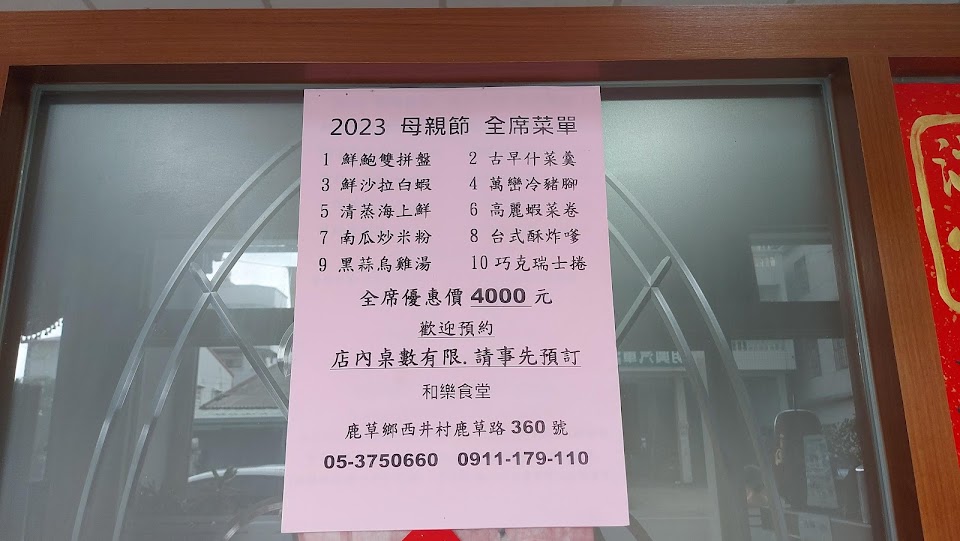 2023 母親節 全席菜單
1 鮮鮑雙拼盤 2 古早什菜羹
3 鮮沙拉白蝦 4 萬巒冷豬腳
5 清蒸海上鮮 6 高麗蝦菜卷
7 南瓜炒米粉 8 台式酥炸嗲
9 黑蒜烏雞湯 10 巧克瑞士捲
全席優惠價 4000 元
歡迎預約
店內桌數有限.請事先預訂
和樂食堂
鹿草鄉西井村鹿草路 360 號
05-3750660 0911-179-110